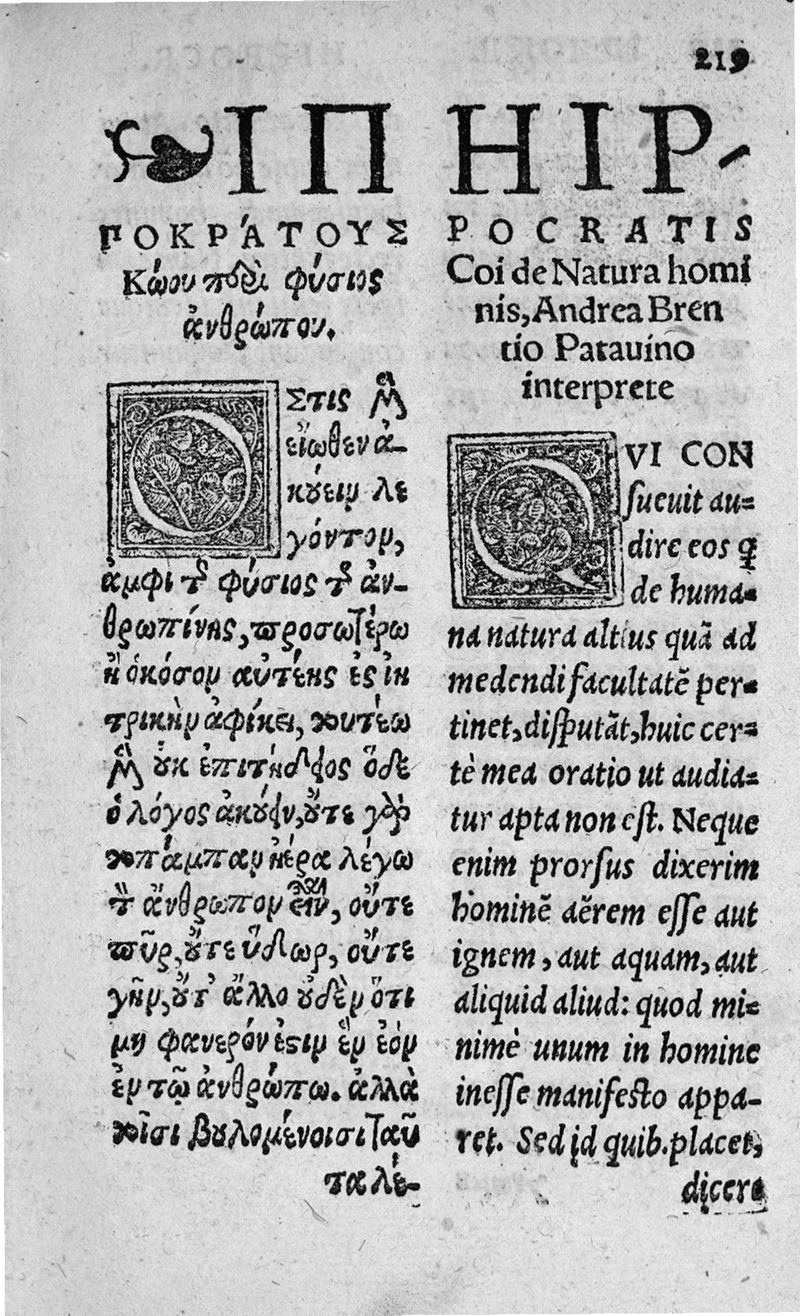 219
ΙΠ
ΠΟΚΡΆΤΟΥΣ
Κώου περὶ φύσιος
ἀνθρώπου.
ΟΣτις μὲν
εἴωθεν ἀ-
κούειν λε
γόντων,
ἀμφὶ τῆς φύσιος τῆς ἀν-
θρωπίνης, προσωτέρω
ἢ ὁκόσον αὐτέης ἐς ἰη
τρικὴν ἀφίκει, τουτέω
μὲν οὐκ ἐπιτήδειος ὅδε
ὁ λόγος ἀκούειν, οὔτε γὰρ
τοπάμπαν ἠέρα λέγω
τὸν ἄνθρωπον εἶναι, οὔτε
πῦρ, οὔτε ὕδωρ, οὔτε
γῆν, οὔτ' ἄλλο οὐδὲν ὅτι
μὴ φανερόν ἐστιν ἓν ἐὸν
ἐν τῷ ἀνθρώπω. ἀλλὰ
τοῖσι βουλομένοισι ταῦ
τα λέ-
HIP-
POCRATIS
Coi de Natura homi
nis, Andrea Bren
tio Patauino
interprete
QVI CON
sueuit au=
dire eos q
de huma=
na natura altius quã ad
medendi facultatẽ per=
tinet, disputãt, huic cer=
tè mea oratio ut audia=
tur apta non est. Neque
enim prorsus dixerim
hominẽ aẽrem esse aut
ignem, aut aquam, aut
aliquid aliud: quod mi=
nimè unum in homine
inesse manifesto appa-
ret. Sed id quib. placet,
dicere